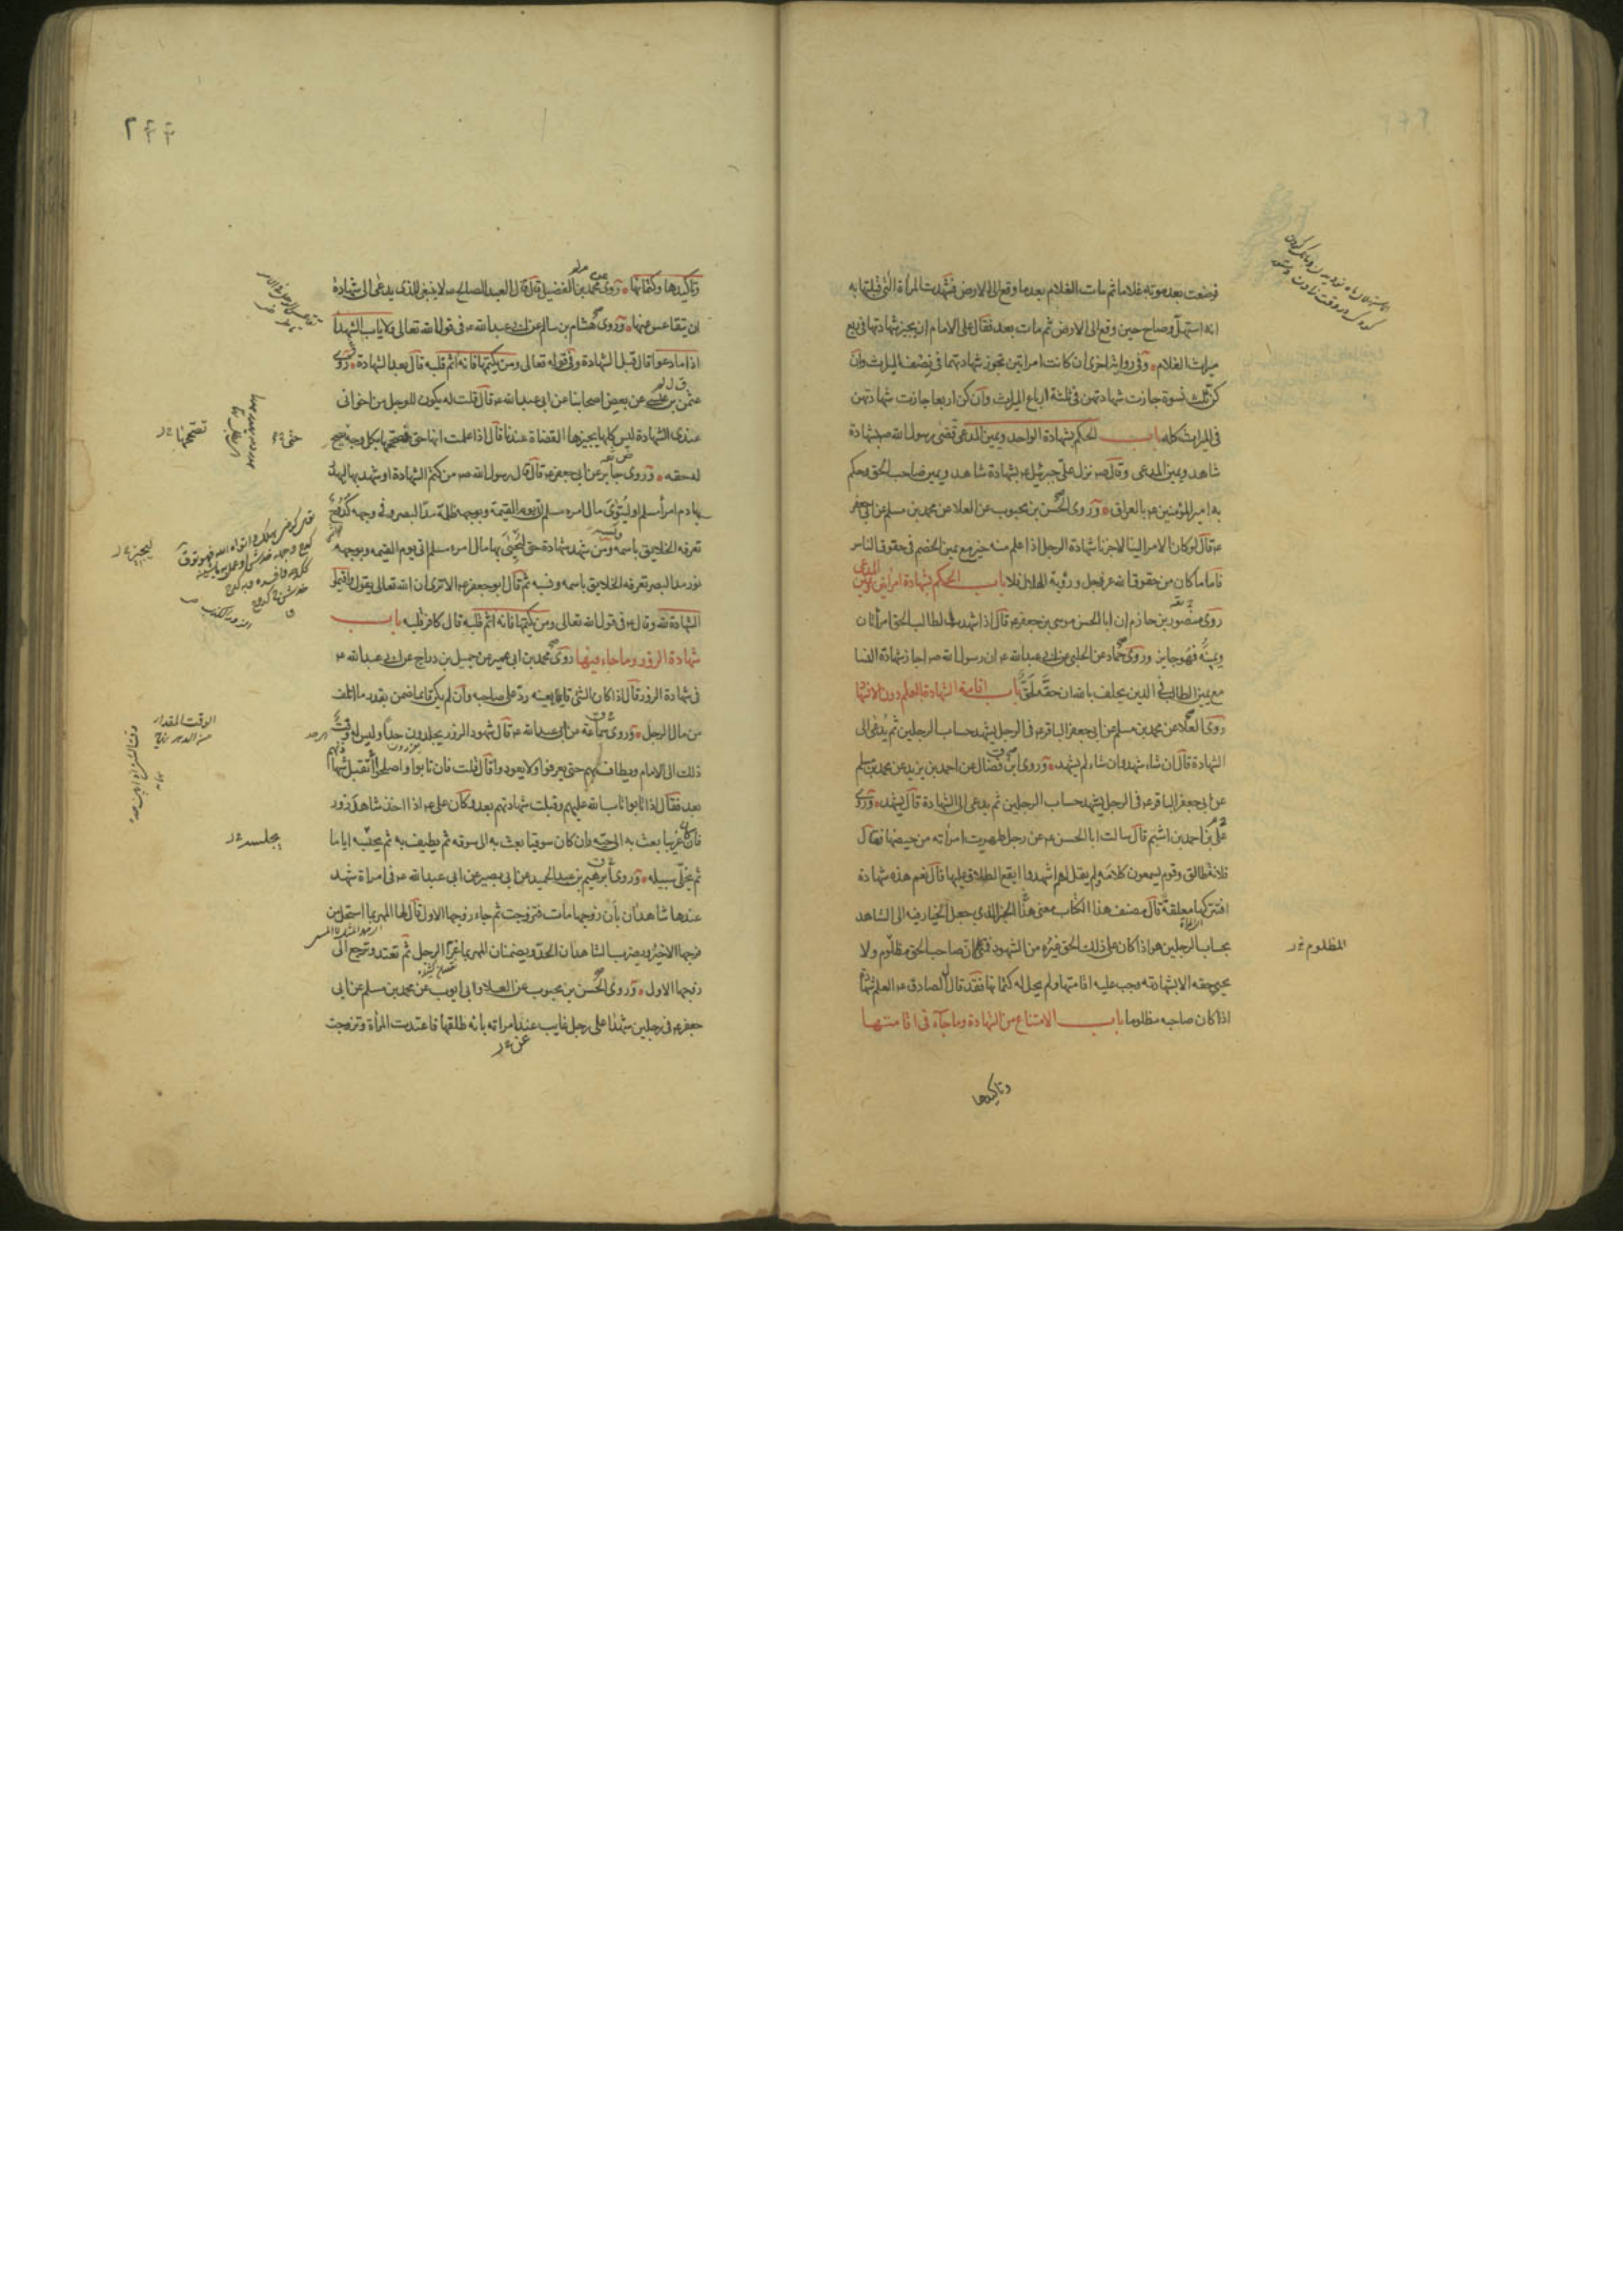 فوضعت بعد موته غلاما ثم مات الغلام بعد ما وقع الى الارض فشهدت المراة التي قبلتها به
انه استهلّ وصاح حين وقع الى الارض ثم مات بعد فقال على الامام ان يجيز شهادتها في ربع
ميراث الغلام وفي رواية اخرى ان كانت امراتين تجوز شهادتهما في نصف الميراث وان
كن ثلث نسوة جازت شهادتهن في ثلثة ارباع الميراث وان كن اربعا جازت شهادتهن
في الميراث كله باب الحكم بشهادة الواحد ويمين المدعى قضى رسول الله ص بشهادة
شاهد ويمين المدعى وقال ص نزل علىّ جبرئيل ع بشهادة شاهد ويمين صاحب الحق وحكم
به امير المؤمنين ع بالعراق وروى الحسن بن محبوب عن العلا عن محمد بن مسلم عن ابي جعفر
ع قال لو كان الامر الينا لاجزنا شهادة الرجل اذا علم منه خير مع يمين الخصم في حقوق الناس
فاما ما كان من حقوق الله عز وجل ورؤية الهلال فلا باب الحكم بشهادة امراتين ويمين المدعى
روى منصور بن حازم ان ابا الحسن موسى بن جعفر ع قال اذا شهدت لطالب الحق امرأتان
ويمينه فهو جايز وروى حماد عن الحلبي عن ابي عبد الله ع ان رسول الله ص اجاز شهادة النسا
مع يمين الطالب في الدين يحلف بالله ان حقه لحق باب اقامة الشهادة بالعلم دون الاشهاد
روى العلا عن محمد بن مسلم عن ابي جعفر الباقر ع في الرجل يشهد حساب الرجلين ثم يدعى الى
الشهادة قال ان شاء شهد وان شاء لم يشهد وروى ابن فضال عن احمد بن يزيد عن محمد بن مسلم
عن ابي جعفر الباقر ع في الرجل يشهد حساب الرجلين ثم يدعى الى الشهادة قال يشهد وروى
على بن احمد بن اشيم قال سالت ابا الحسن ع عن رجل طهرت امراته من حيضها فقال
فلانة طالق وقوم يسمعون كلامه ولم يقل لهم اشهدوا ايقع الطلاق عليها قال نعم هذه شهادة
افتتركها معلقة قال مصنف هذا الكتاب معنى هذا الخبر الذي جعل الخيار فيه الى الشاهد
بحساب الرجلين هو اذا كان على ذلك الحق غيره من الشهود فمتى كان صاحب الحق مظلوم ولا
المظلوم
يحيى حقه الا بشهادته وجب عليه اقامتها ولم يحل له كتمانها فقد قال الصادق ع العلم شهادة
اذا كان صاحبه مظلوما باب الامتناع من الشهادة وما جاء في اقامتها
وتاكيدها
وتاكيدها وكتمانها وروى محمد بن الفضيل قال قال العبد الصالح ع لا ينبغي للذي يدعى الى شهادة
ان يتقاعس عنها وروى هشام بن سالم عن ابي عبد الله ع في قول الله تعالى ولا ياب الشهدا
اذا ما دعوا قال قبل الشهادة وفي قوله تعالى ومن يكتمها فانه آثم قلبه قال بعد الشهادة وروى
عثمن بن عيسى عن بعض اصحابنا عن ابي عبد الله ع قال قلت له يكون للرجل من اخواني
عندي الشهادة ليس كلها يجيزها القضاة عندنا قال اذا علمت انها حق فصححها بكل وجه حتى يصح
تصححها
له حقه وروى جابر عن ابي جعفر ع قال قال رسول الله ص من كتم الشهادة او شهد بها ليهدر
بها دم امرأ مسلم او ليتوى مال امرء مسلم اتى يوم القيمة ولوجهه ظلمة مد البصر وفي وجهه كدوح
تعرفه الخلايق باسمه ونسبه ومن شهد شهادة حق ليحيى بها مال امرء مسلم اتى يوم القيمه ولوجهه
نور مد البصر تعرفه الخلايق باسمه ونسبه ثم قال ابو جعفر ع الا ترى ان الله تعالى يقول واقيموا
الشهادة لله وقال ع في قول الله تعالى ومن يكتمها فانه آثم قلبه قال كافر قلبه باب
شهادة الزور وما جاء فيها روى محمد بن ابي عمير عن جميل بن دراج عن ابي عبد الله ع
في شهادة الزور قال اذا كان الشئ قايما بعينه ردّ على صاحبه وان لم يكن قايما ضمن بقدر ما اتلف
من مال الرجل وروى سماعة عن ابي عبد الله ع قال شهود الزور يجلدون حدّا وليس له وقت
الوقت المقدار
من الدهر
ذلك الى الامام ويطاف بهم حتى يعرفوا ولا يعودوا قال قلت فان تابوا واصلحوا أتقبل شهادتهم
بعد فقال اذا تابوا تاب الله عليهم وقبلت شهادتهم بعد وكان على ع اذا اخذ شاهد زور
فان كان غريبا بعث به الى حيّه وان كان سوقيا بعث به الى سوقه ثم يطيف به ثم يحبسه اياما
يجلسه
ثم يخلّى سبيله وروى ابرهيم بن عبد الحميد عن ابي بصير عن ابي عبد الله ع في امراة شهد
عندها شاهدان بأن زوجها مات فتزوجت ثم جاء زوجها الاول قال لها المهر بما استحل من
فرجها الاخير ويضرب الشاهدان الحدّ ويضمنان المهر بما غرّا الرجل ثم تعتد وترجع الى
زوجها الاول وروى الحسن بن محبوب عن العلا وابي ايوب عن محمد بن مسلم عن ابي
جعفر ع في رجلين شهدا على رجل غايب عند امراته بانه طلقها فاعتدت المرأة وتزوجت